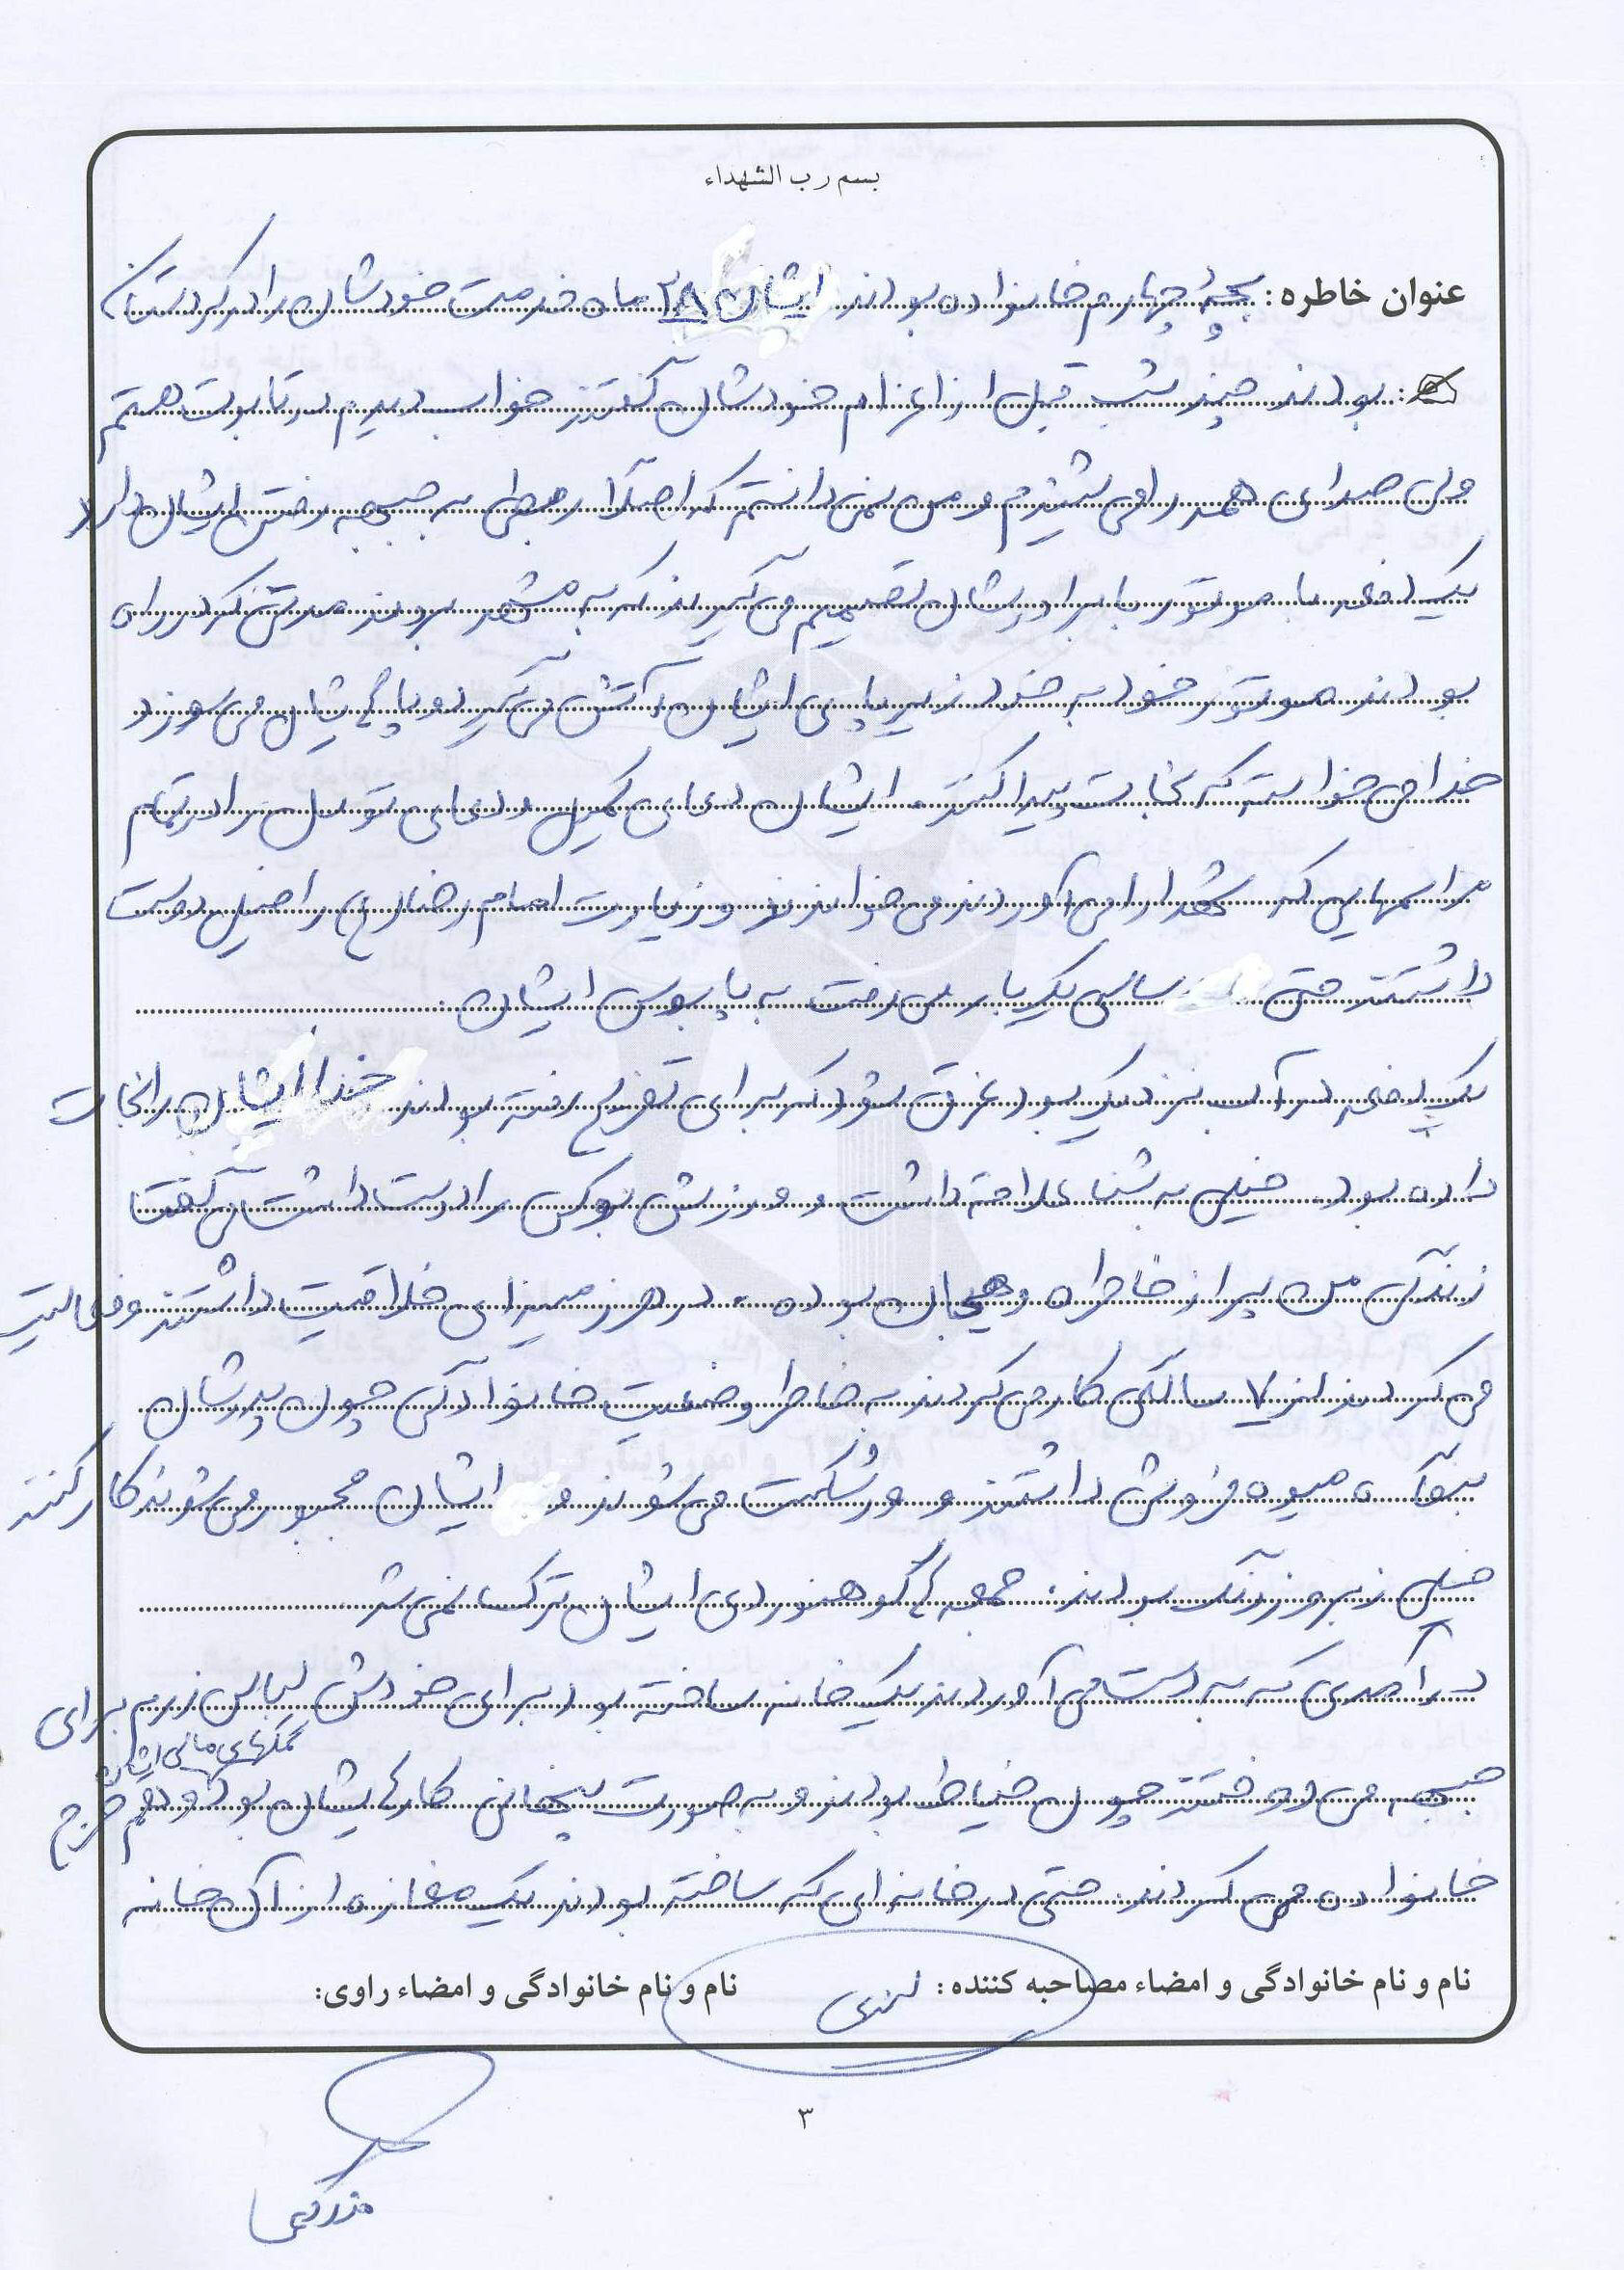 بسم رب الشهداء
عنوان خاطره: بچه چهارم خانواده بودند ایشان ۲۸ ماه خدمت خودشان را در کردستان
بودند چند شب قبل از اعزام خودشان گفتند خواب دیدم در تابوت هستم
ولی صدای همه را می شنیدم و من نمی دانستم که اصلا ربطی به جبهه رفتن ایشان دارد
یک دفعه با موتور با برادرشان تصمیم می گیرند که به مشهد بروند مدتی که در راه
بودند موتور خود به خود زیر پای ایشان آتش می گیرد و پاهایشان می سوزد
خدا می خواسته که نجات پیدا کنند. ایشان دعای کمیل و دعای توسل را در تمام
مراسمهایی که شهدا را می آوردند می خواندند و زیارت امام رضا (ع) را خیلی دوست
داشتند حتی سالی یکبار می رفت به پابوس ایشان.
یک دفعه در آب نزدیک بود غرق شود که برای تفریح رفته بودند خدا ایشان را نجات
داده بود. خیلی به شنا علاقه داشت و ورزش بوکس را دوست داشت می گفت
زندگی من پر از خاطره و هیجان بوده. در هر زمینه ای خلاقیت داشتند و فعالیت
می کردند از ۷ سالگی کار می کردند به خاطر وضعیت خانوادگی چون پدرشان
میوه فروش داشتند و ورشکست می شوند و ایشان مجبور می شوند کار کنند
خیلی زبر و زرنگ بودند. جمعه ها کوهنوردی ایشان ترک نمی شد
درآمدی که به دست می آوردند یک خانه ساخته بود برای خودش لباس رزم برای
جبهه می دوختند چون خیاط بودند و به صورت پنهانی کارهایشان بود و هم خرج
کمکهای مالی ایشان
خانواده می کردند. حتی در خانه ای که ساخته بودند یک مغازه از آن خانه
نام و نام خانوادگی و امضاء مصاحبه کننده: نام و نام خانوادگی و امضاء راوی:
۳